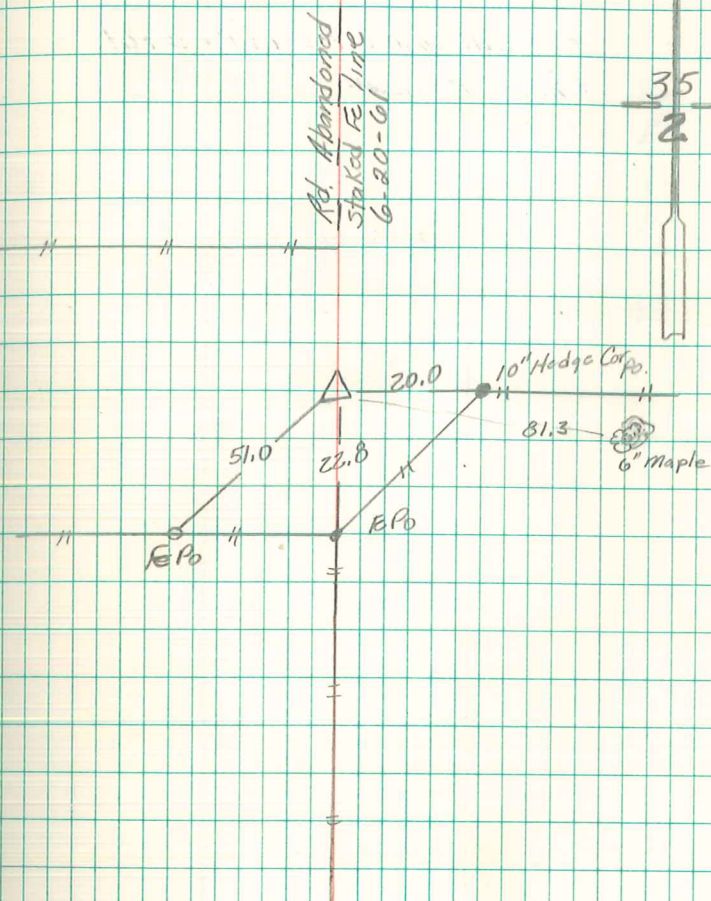 Rd. Abandoned
Staked Fc line
6-20-61
35
2
10" Hedge Cor Po.
20.0
81.3
6" Maple
51.0
22.8
F.Po
F.Po